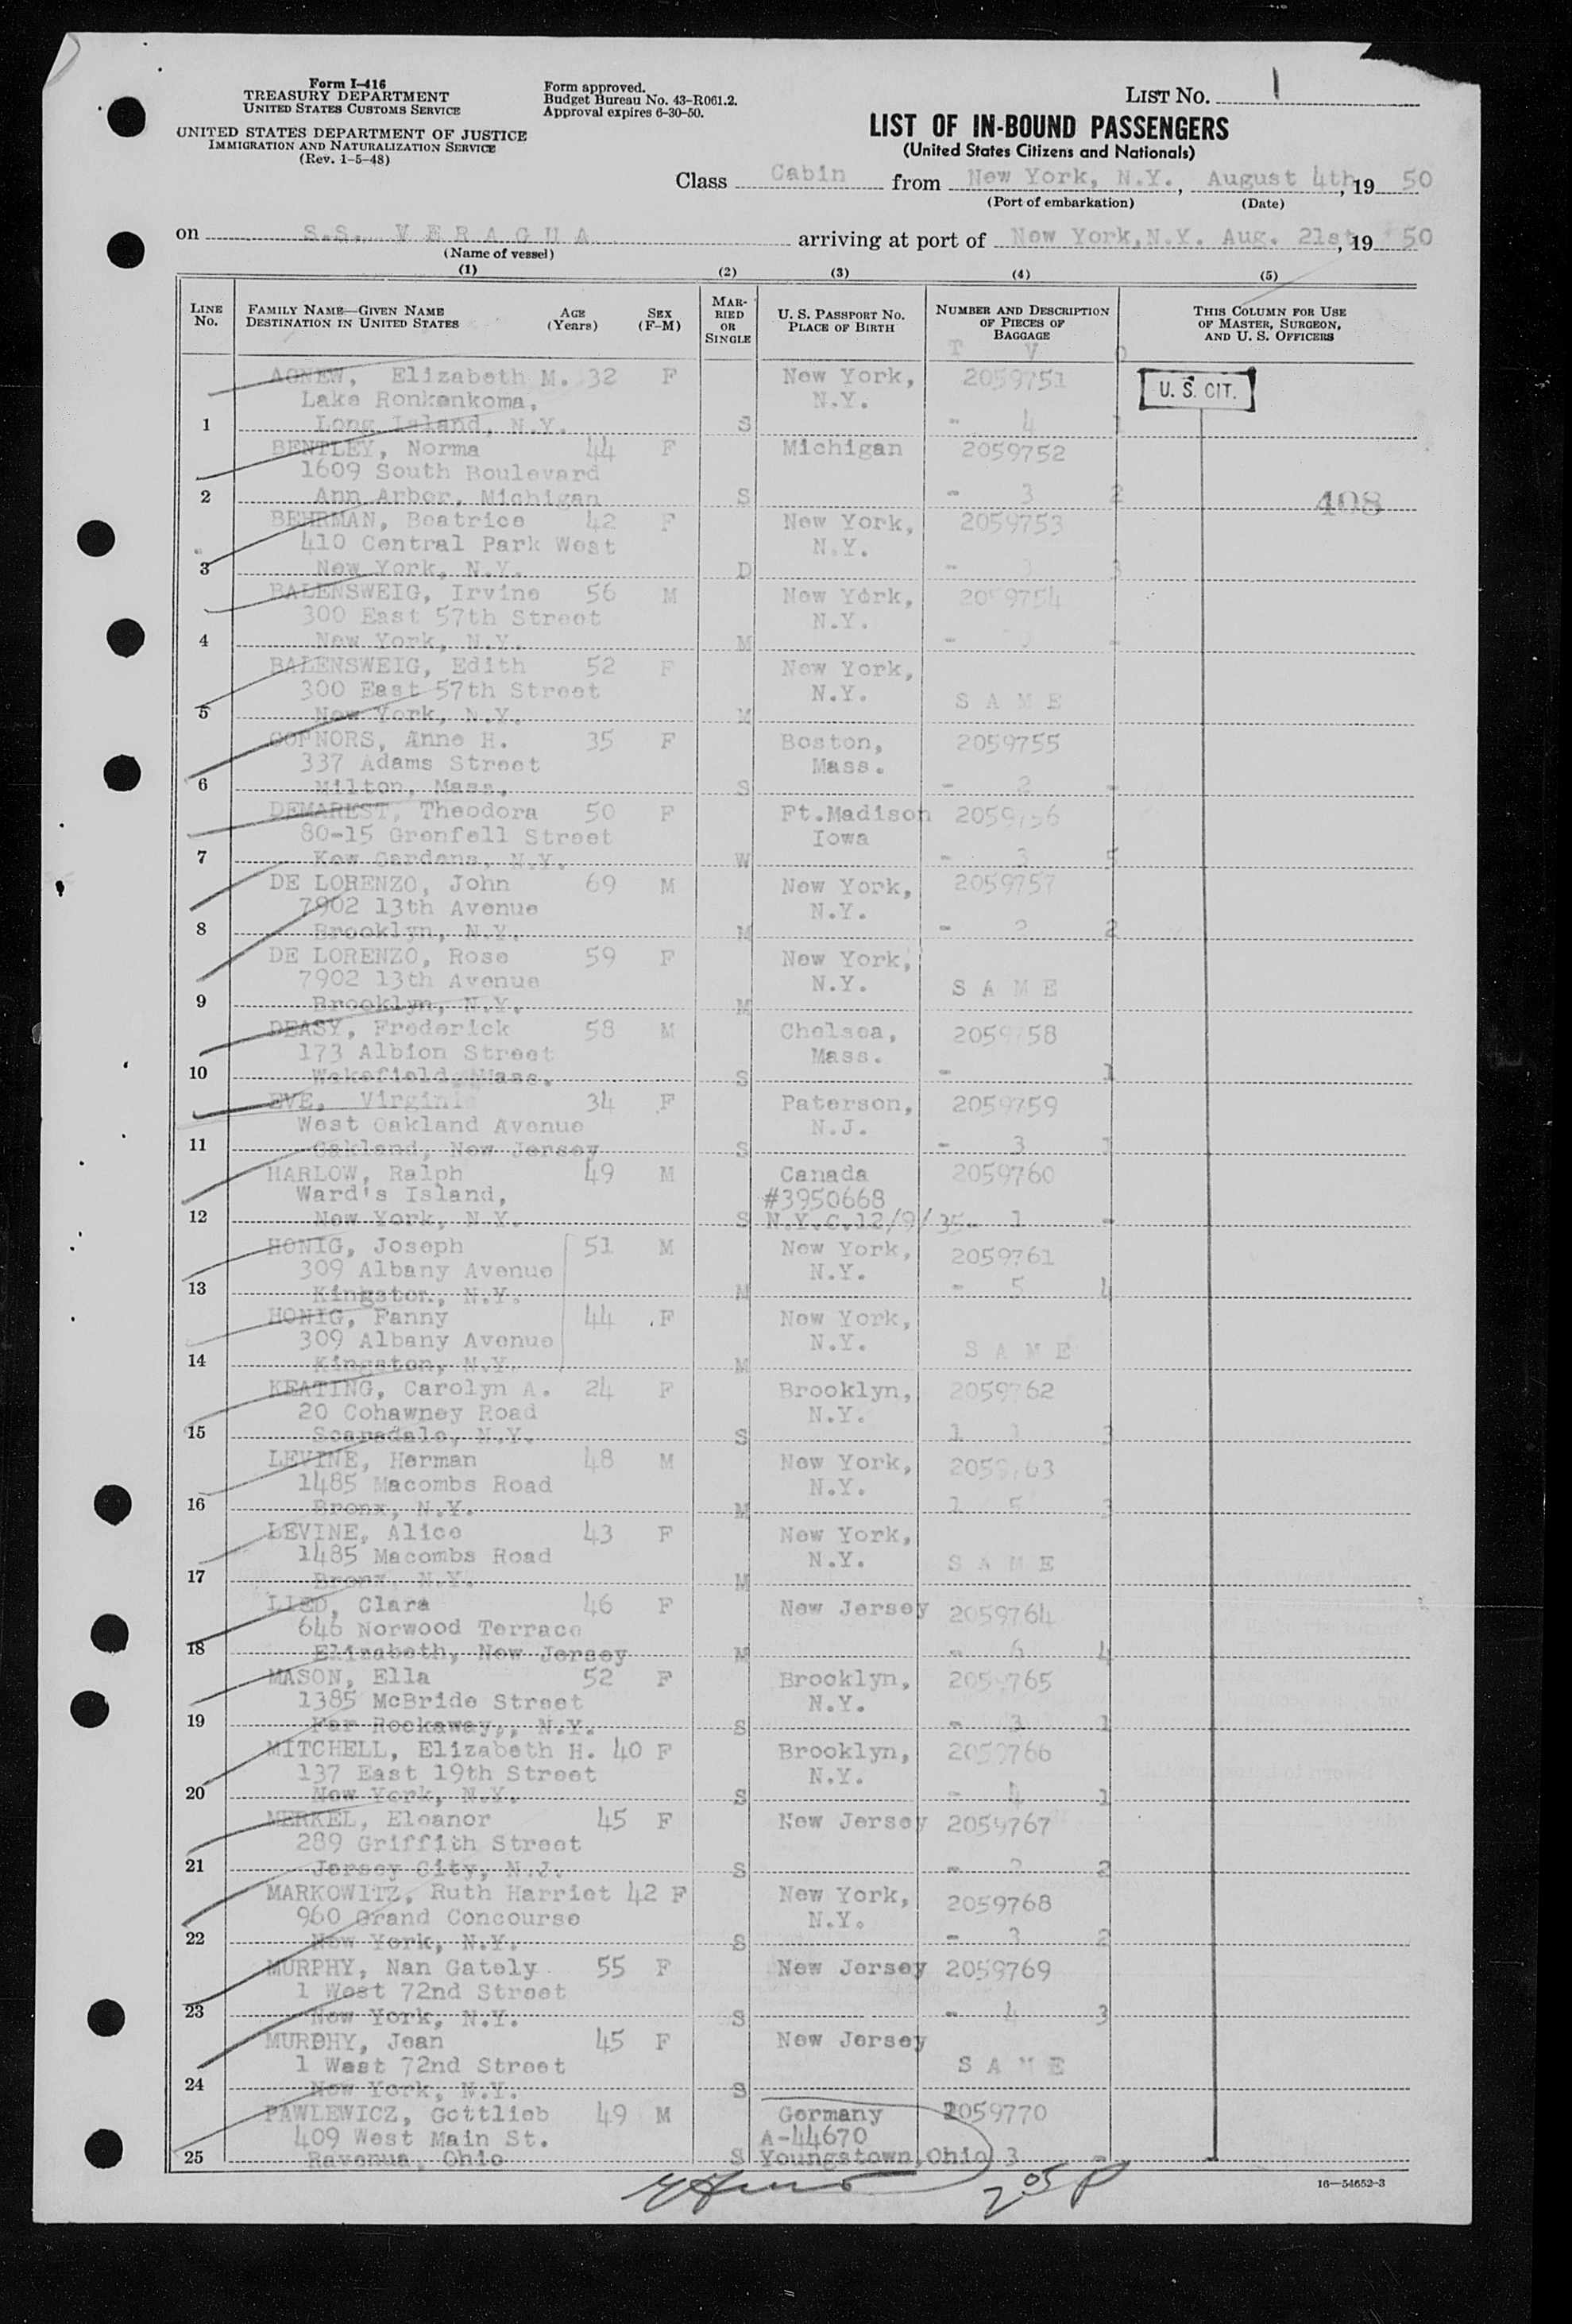 Form I-416
TREASURY DEPARTMENT
UNITED STATES CUSTOMS SERVICE
UNITED STATES DEPARTMENT OF JUSTICE
IMMIGRATION AND NATURALIZATION SERVICE
(Rev. 1-5-48)
Form approved.
Budget Bureau No. 43-R061.2.
Approval expires 6-30-50.
LIST NO. 1
LIST OF IN-BOUND PASSENGERS
(United States Citizens and Nationals)
Class Cabin from New York, N.Y., August 4th, 19 50
(Port of embarkation) (Date)
on S.S. VERAGUA arriving at port of New York, N.Y. Aug. 21st, 19 50
(Name of vessel)
(1) (2) (3) (4) (5)
LINE No. FAMILY NAME—GIVEN NAME DESTINATION IN UNITED STATES AGE (Years) SEX (F-M) MARRIED OR SINGLE U. S. PASSPORT NO. PLACE OF BIRTH NUMBER AND DESCRIPTION OF PIECES OF BAGGAGE THIS COLUMN FOR USE OF MASTER, SURGEON, AND U. S. OFFICERS
T V
AGNEW, Elizabeth M. 32 F New York, 2059751 U. S. CIT.
Lake Ronkonkoma, N.Y.
1 Long Island, N.Y. S - 4 1
BENTLEY, Norma 44 F Michigan 2059752
1609 South Boulevard
2 Ann Arbor, Michigan S - 3 2 408
BEHRMAN, Beatrice 42 F New York, 2059753
410 Central Park West N.Y.
3 New York, N.Y. D - 3 3
BALENSWEIG, Irvine 56 M New York, 2059754
300 East 57th Street N.Y.
4 New York, N.Y. M - -
BALENSWEIG, Edith 52 F New York,
300 East 57th Street N.Y. SAME
5 New York, N.Y. M
CONNORS, Anne H. 35 F Boston, 2059755
337 Adams Street Mass.
6 Milton, Mass. S - 2 -
DEMAREST, Theodora 50 F Ft.Madison 2059756
80-15 Grenfell Street Iowa
7 Kew Gardens, N.Y. W - 3 5
DE LORENZO, John 69 M New York, 2059757
7902 13th Avenue N.Y.
8 Brooklyn, N.Y. M - 2 2
DE LORENZO, Rose 59 F New York,
7902 13th Avenue N.Y. SAME
9 Brooklyn, N.Y. M
DEASY, Frederick 58 M Chelsea, 2059758
173 Albion Street Mass.
10 Wakefield, Mass. S - 1
EVE, Virginia 34 F Paterson, 2059759
West Oakland Avenue N.J.
11 Oakland, New Jersey S - 3
HARLOW, Ralph 49 M Canada 2059760
Ward's Island, #3950668
12 New York, N.Y. S N.Y.C.12/9/35 - 1 -
HONIG, Joseph 51 M New York, 2059761
309 Albany Avenue N.Y.
13 Kingston, N.Y. M - 5 4
HONIG, Fanny 44 F New York,
309 Albany Avenue N.Y. SAME
14 Kingston, N.Y. M
KEATING, Carolyn A. 24 F Brooklyn, 2059762
20 Cohawney Road N.Y.
15 Scarsdale, N.Y. S 1 1 3
LEVINE, Herman 48 M New York, 2059763
1485 Macombs Road N.Y.
16 Bronx, N.Y. M 1 5 3
LEVINE, Alice 43 F New York,
1485 Macombs Road N.Y. SAME
17 Bronx, N.Y. M
LIED, Clara 46 F New Jersey 2059764
646 Norwood Terrace
18 Elizabeth, New Jersey M - 6 4
MASON, Ella 52 F Brooklyn, 2059765
1385 McBride Street N.Y.
19 Far Rockaway,, N.Y. S - 3 1
MITCHELL, Elizabeth H. 40 F Brooklyn, 2059766
137 East 19th Street N.Y.
20 New York, N.Y. S - 4 1
MERKEL, Eleanor 45 F New Jersey 2059767
289 Griffith Street
21 Jersey City, N.J. S - 2 2
MARKOWITZ, Ruth Harriet 42 F New York, 2059768
960 Grand Concourse N.Y.
22 New York, N.Y. S - 3 2
MURPHY, Nan Gately 55 F New Jersey 2059769
1 West 72nd Street
23 New York, N.Y. S - 4 3
MURPHY, Jean 45 F New Jersey
1 West 72nd Street SAME
24 New York, N.Y. S
PAWLEWICZ, Gottlieb 49 M Germany 2059770
409 West Main St. A-44670
25 Ravenna, Ohio S Youngstown, Ohio 3 -
16—54652-3